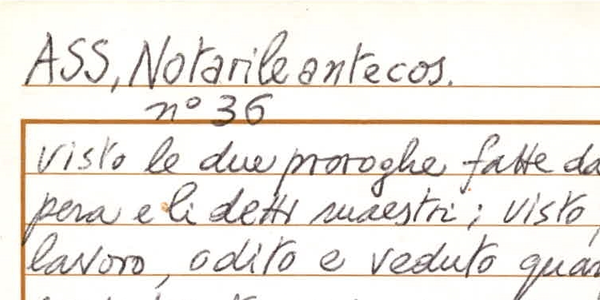 ASS, Notarile antecos.
n° 36
visto le due proroghe fatte da
pera e li detti maestri; visto,
lavoro, odito e veduto quan